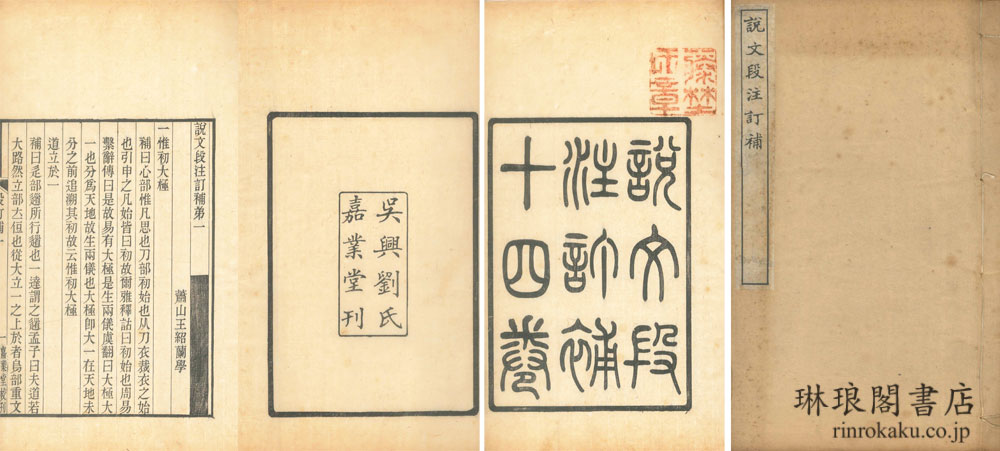 說文段注訂補
說文段
注訂補
十四卷
吳興劉氏
嘉業堂刊
說文段注訂補弟一
蕭山王紹蘭學
一惟初大極
補曰心部惟凡思也刀部初始也从刀衣裁衣之始
也引申之凡始皆曰初故爾雅釋詁曰初始也周易
繫辭傳曰是故易有大極是生兩儀虞翻曰大極大
一也分爲天地故生兩儀也大極卽大一在天地未
分之前追溯其初故云惟初大極
道立於一
補曰辵部道所行道也一達謂之道孟子曰夫道若
大路然立部立侸也從大立一之上於者烏部重文
琳琅閣書店
rinrokaku.co.jp